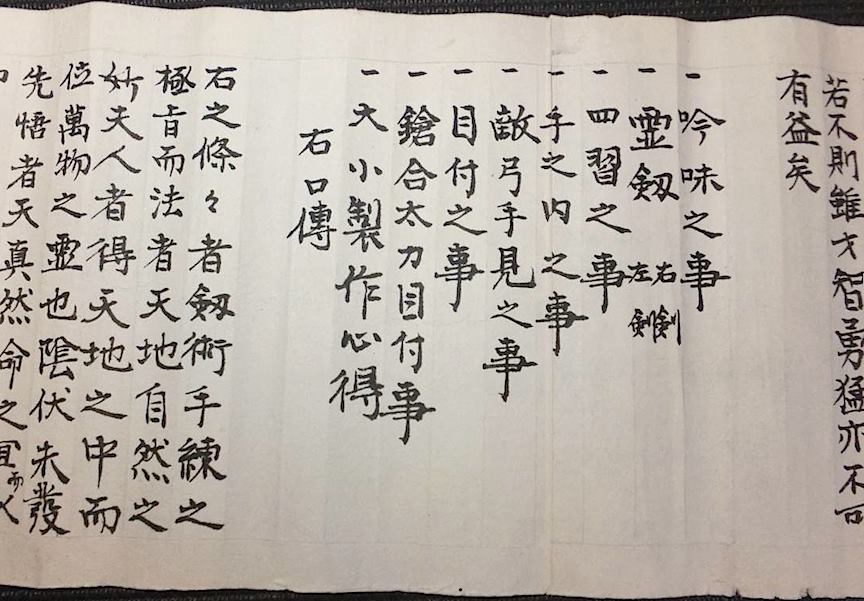 若不則雖才智勇猛亦不可
有益矣
一 吟味之事
一 霊釼 右剣 左剣
一 四習之事
一 手之内之事
一 敵弓手見之事
一 目付之事
一 鎗合太刀目付事
一 大小製作心得
右口傳
右之條々者釼術手練之
極旨而法者天地自然之
妙夫人者得天地之中而
位萬物之霊也陰伏未發
先悟者天真然命之宜而